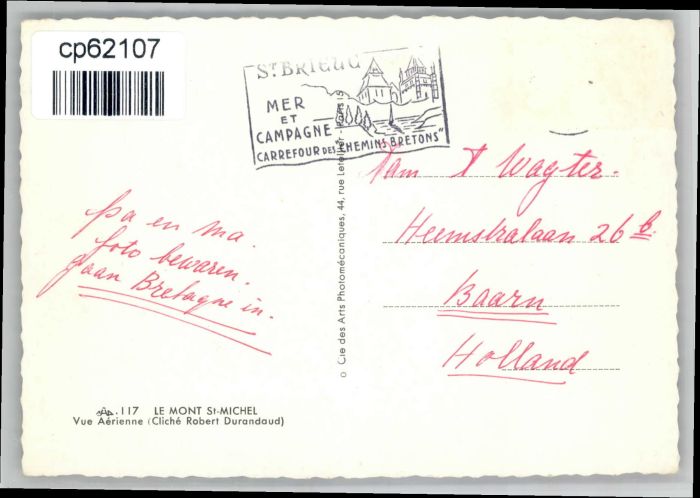 cp62107
St BRIEUC
MER
ET
CAMPAGNE
"CARREFOUR DES CHEMINS BRETONS"
Fam T Wagter.
Heemstralaan 26 b.
Baarn
Holland
pa en ma.
foto bewaren.
gaan Bretagne in.
Cie des Arts Photomécaniques, 44, rue Letellier - Paris 15
117 LE MONT St-MICHEL
Vue Aérienne (Cliché Robert Durandaud)